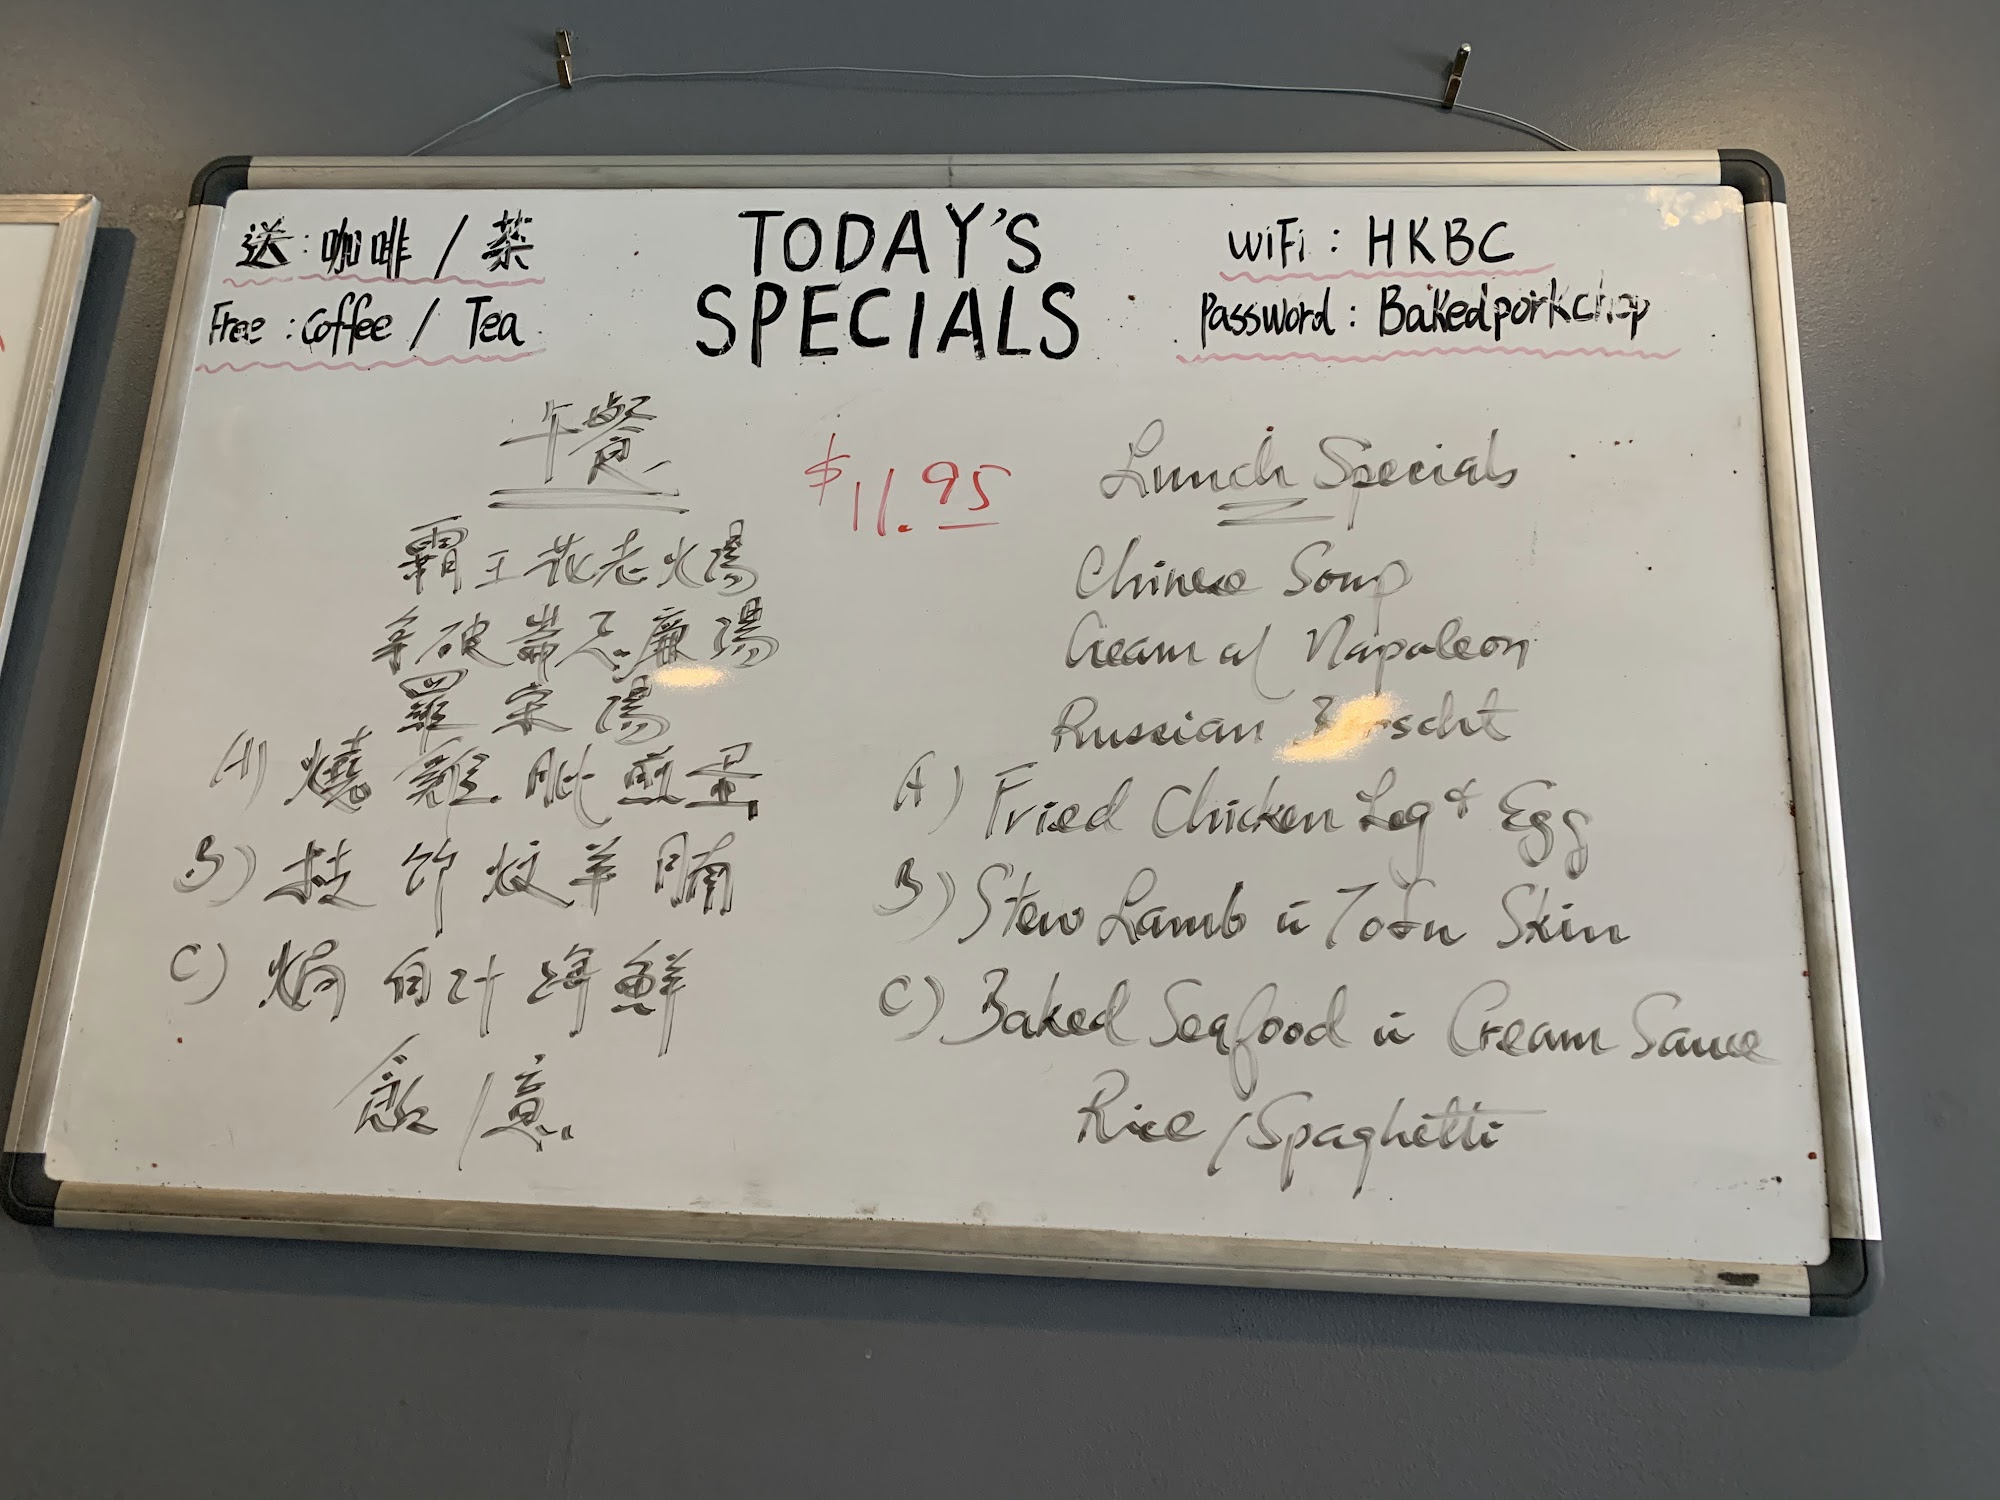 送:咖啡/茶
Free:Coffee/Tea
TODAY'S
SPECIALS
WiFi:HKBC
Password:Bakedporkchop
午餐
$11.95
霸王花老火湯
拿破崙忌廉湯
羅宋湯
A) 燒雞肶煎蛋
B) 枝竹炆羊腩
C) 焗白汁海鮮
飯/意
Lunch Specials
Chinese Soup
Cream of Napoleon
Russian Borscht
A) Fried Chicken Leg & Egg
B) Stew Lamb in Tofu Skin
C) Baked Seafood in Cream Sauce
Rice/Spaghetti